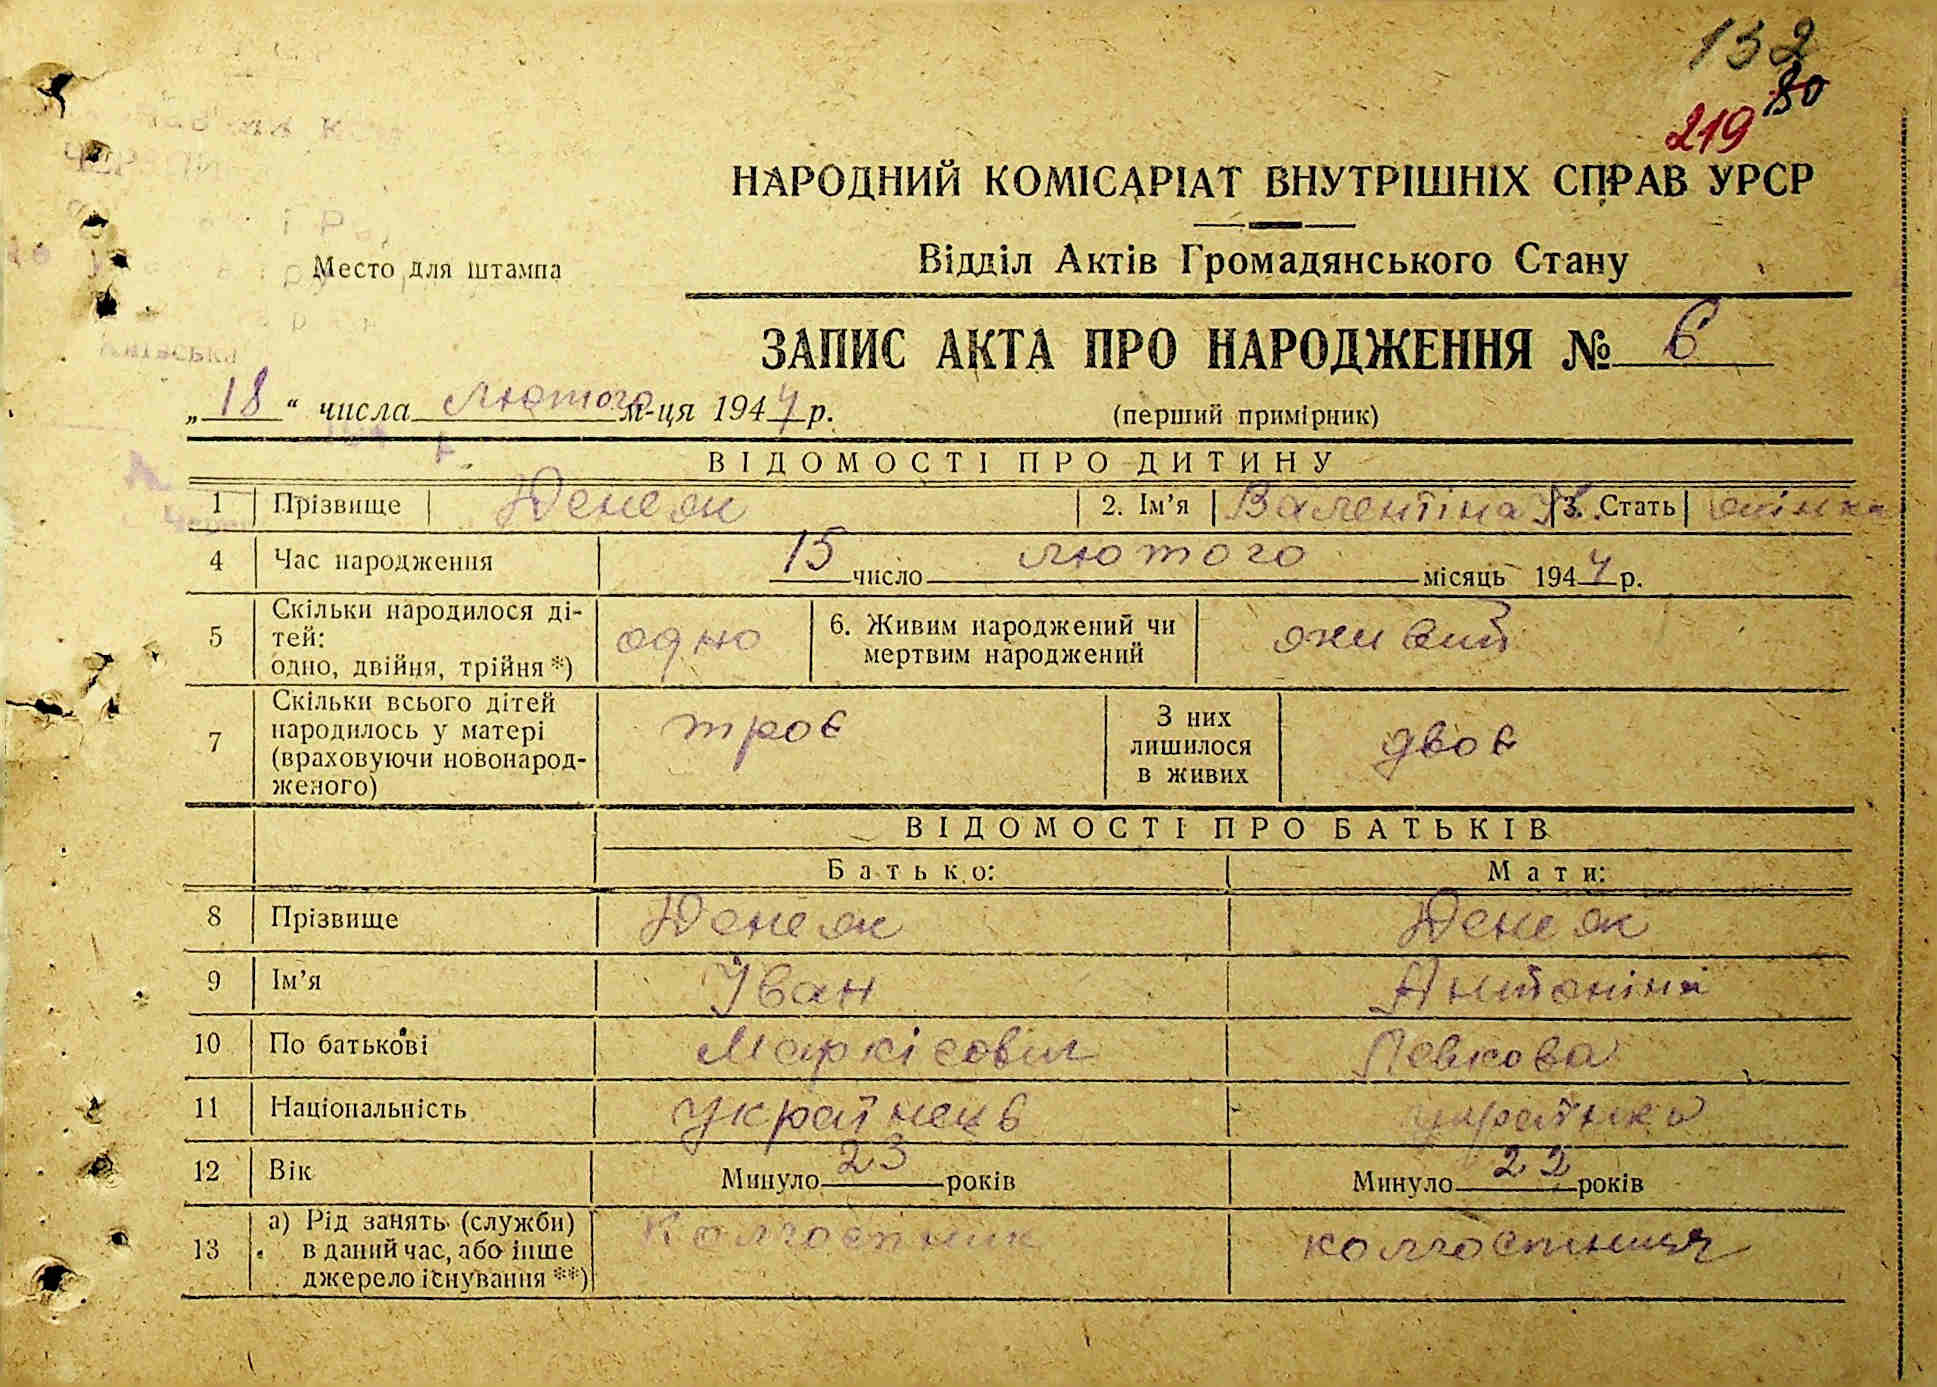 132
80
219
НАРОДНИЙ КОМІСАРІАТ ВНУТРІШНІХ СПРАВ УРСР
Відділ Актів Громадянського Стану
Место для штампа
ЗАПИС АКТА ПРО НАРОДЖЕННЯ № 6
„18“ числа лютого м-ця 1944 р. (перший примірник)
ВІДОМОСТІ ПРО ДИТИНУ
1 Прізвище Денеж 2. Ім'я Валентіна 3. Стать жінка
4 Час народження 15 число лютого місяць 1944 р.
5 Скільки народилося ді-
тей:
одно, двійня, трійня *) одно 6. Живим народжений чи
мертвим народжений живий
7 Скільки всього дітей
народилось у матері
(враховуючи новонарод-
женого) троє З них
лишилося
в живих двоє
ВІДОМОСТІ ПРО БАТЬКІВ
Батько: Мати:
8 Прізвище
9 Ім'я Іван Антоніна
10 По батькові Левкова
11 Національність українець українка
12 Вік Минуло 23 років Минуло 22 років
13 а) Рід занять (служби)
в даний час, або інше
джерело існування **) Колгоспник колгоспниця